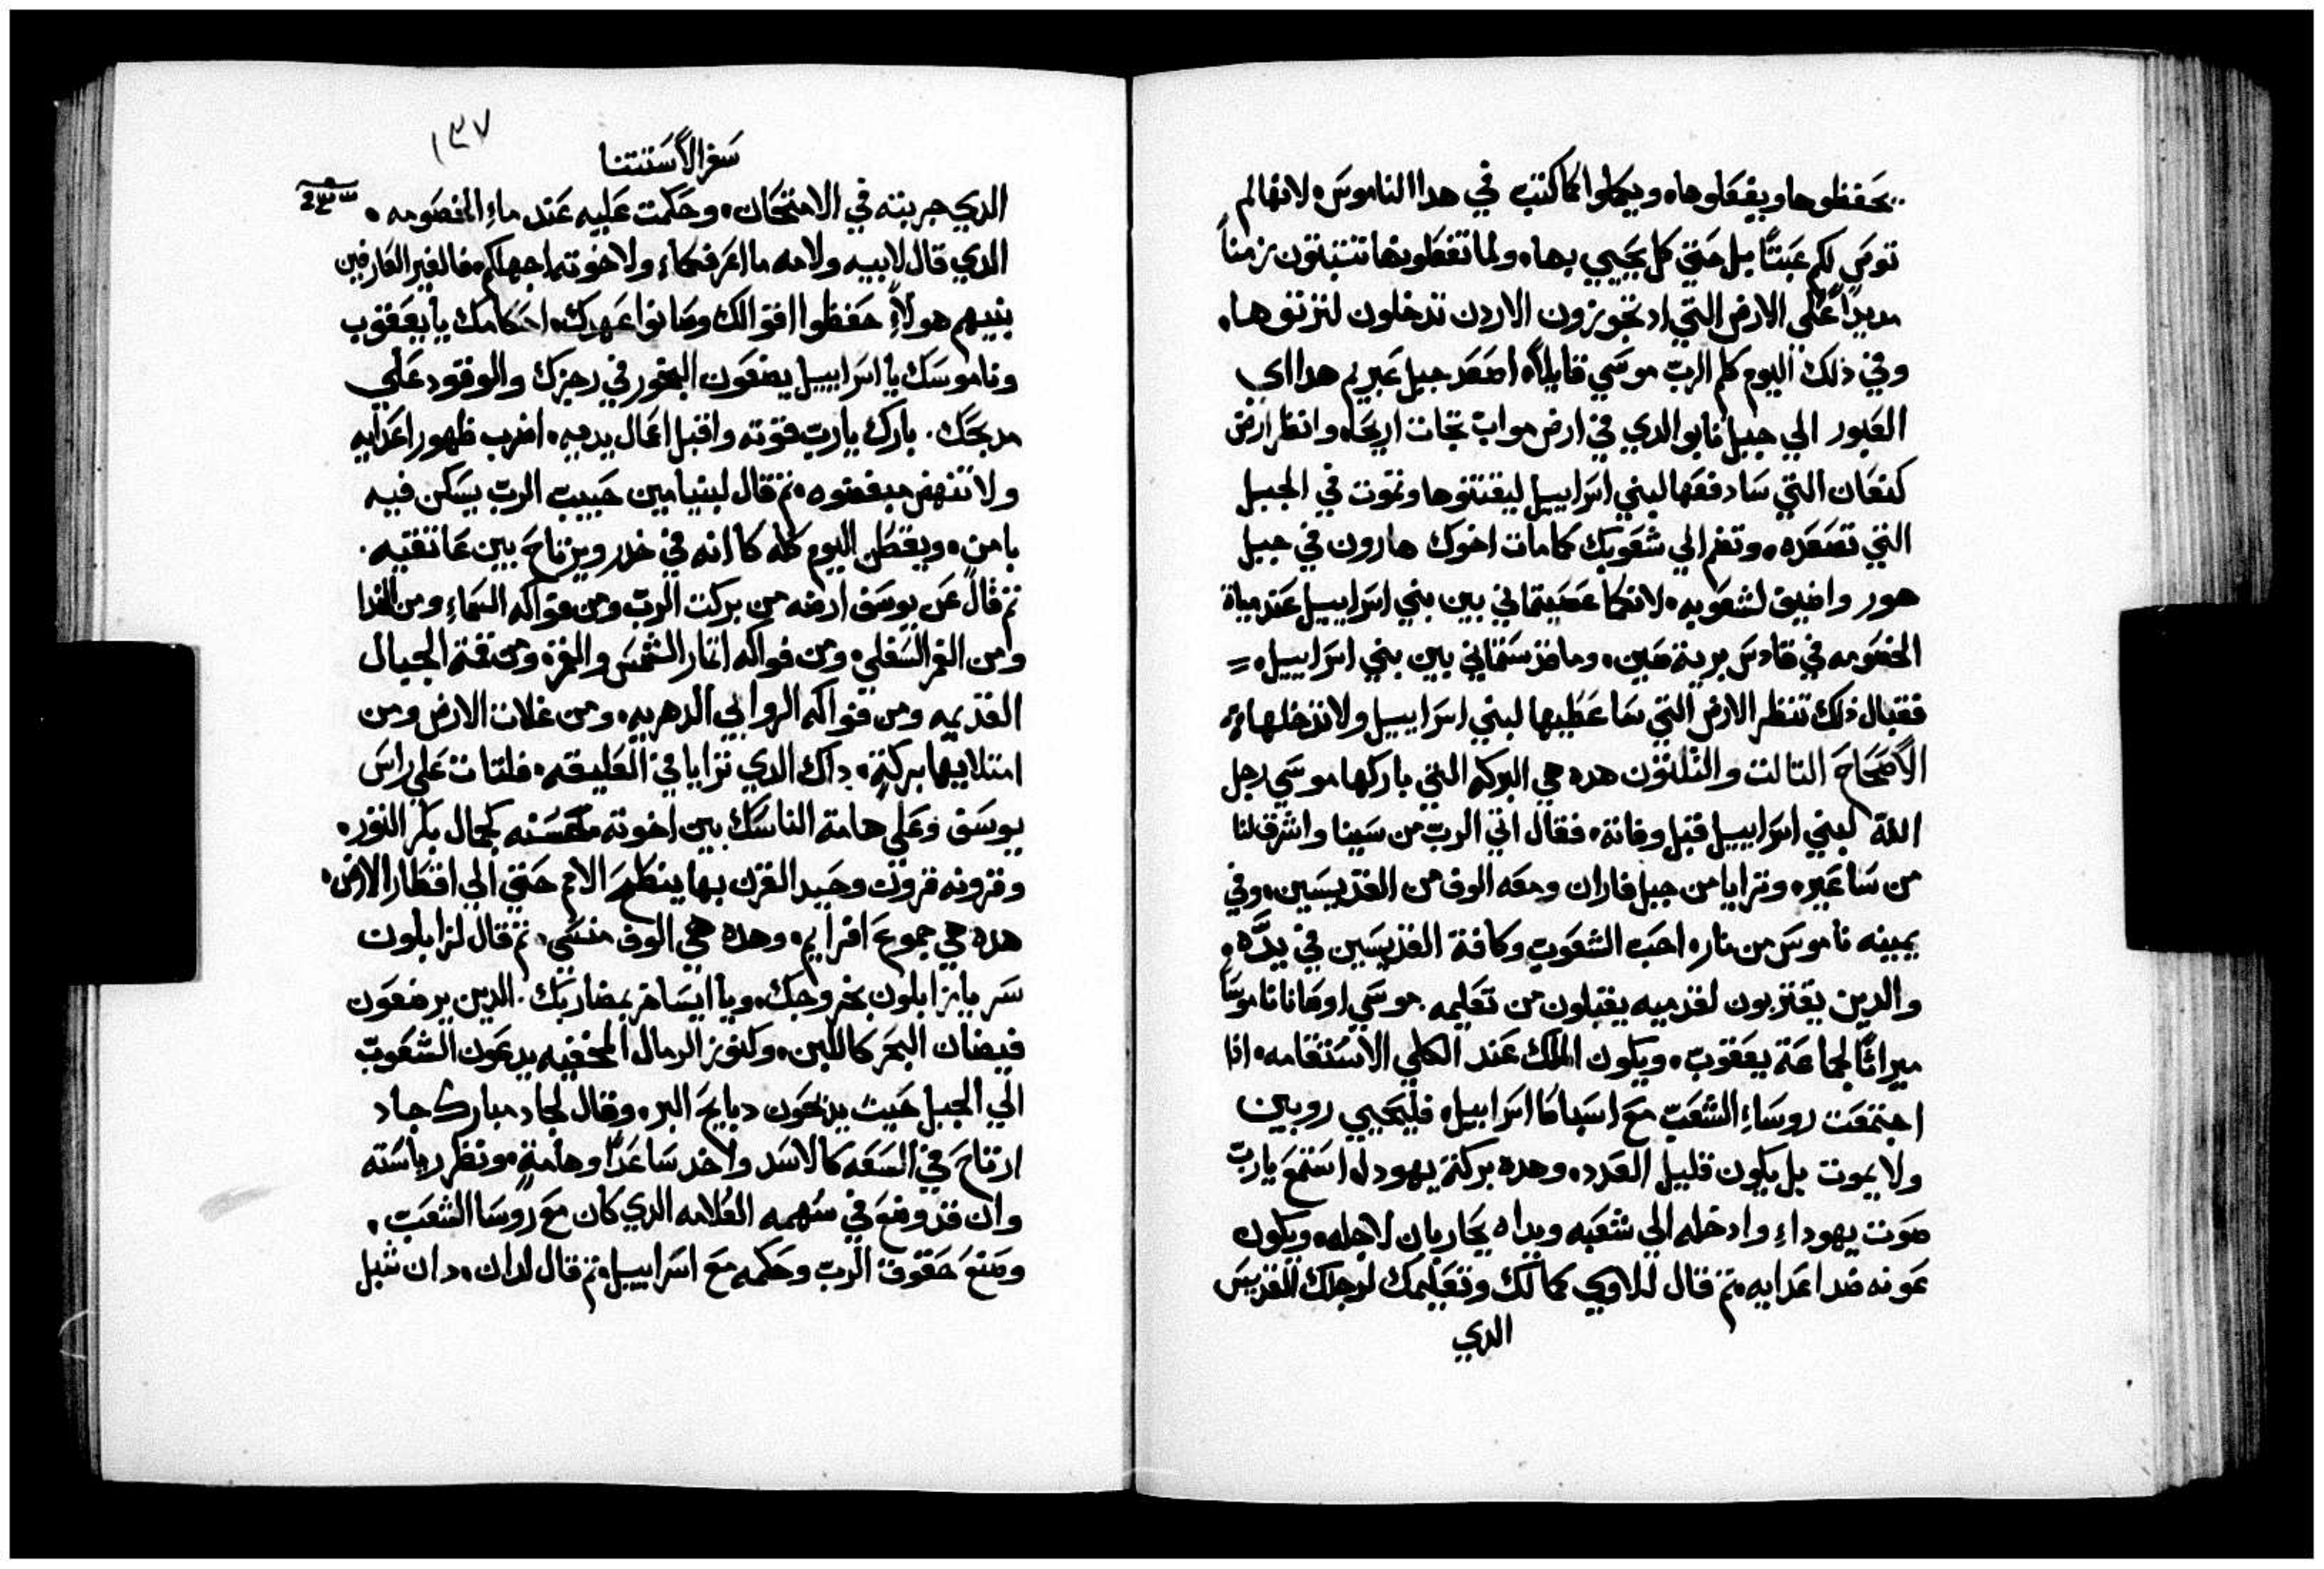 يحفظوها ويفعلوها، ويكملوا كما كتب في هدا الناموس، لانها لم
توص لكم عبثًا بل حتي كل يحيي بها، ولما تفعلونها تتبتون زمناً
مديدًا علي الارض التي اد تجوزون الاردن تدخلون لترتوها،
وفي ذلك اليوم كلم الرب موسي قايلاً، اصعد جبل عبريم هدا اي
العبور الي جبل نابو الدي في ارض مواب تجاة اريحا، وانظر ارض
كنعان التي سادفعها لبني اسراييل ليقتنوها وتموت في الجبل
التي تصعده، وتضم الي شعوبك كما مات اخوك هارون في جبل
هور واضيف لشعوبه، لانكما عصيتماني بين بني اسراييل عند مياة
الخصومه في قادس برية صين، وما قدستماني بين بني اسراييل،
فقبال ذلك تنظر الارض التي ساعطيها لبني اسراييل ولا تدخلها،
الأصحاح التالت والتلتون هده هي البركه التي باركها موسي رجل
اللة لبني اسراييل قبل وفاتة، فقال اتي الرب من سينا واشرق لنا
من ساعير، وترايا من جبل فاران ومعه الوف من القديسين، وفي
يمينه ناموس من نار، احب الشعوب وكافة القديسين في يده،
والدين يقتربون لقدميه يقبلون من تعليمه. موسي اوصانا ناموسًا
ميراتًا لجماعة يعقوب، ويكون الملك عند الكلي الاستقامه، اذا
اجتمعت روساء الشعب مع اسباط اسراييل، فليحيي روبين
ولا يموت بل يكون قليل العدد، وهده بركة يهودا، استمع يارب
صوت يهوداء وادخله الي شعبه ويداه يحاربان لاجله، ويكون
عونه ضد اعدايه، تم قال للاوي كمالك وتعليمك لرجلك القديس
الدي
١٣٧
سفر الأستتنا
الدي جربته في الامتحان، وحكمت عليه عند ماء الخصومه،
الدي قال لابيه ولامه ما اعرفكما، ولاخوته اجهلكم، فالغير العارفين
بنيهم هولاء حفظوا اقوالك وصانوا عهدك، احكامك يا يعقوب
وناموسك يا اسراييل يضعون البخور في رجزك والوقود علي
مدبحك. بارك يارب قوته واقبل اعمال يديه، اضرب ظهور اعدايه
ولا تنهض مبغضوه، تم قال لبنيامين حبيب الرب يسكن فيه
بامن، ويقطن اليوم كله كما انه في خدر ويرتاح بين عاتقيه.
تم قال عن يوسف ارضه من بركت الرب ومن فواكه السماء ومن الندا
ومن الغمر السفلي، ومن فواكه اتمار الشمس والقمر، ومن قمة الجبال
القديمه ومن فواكه الروابي الدهريه، ومن غلات الارض ومن
امتلاييها بركة، داك الدي ترايا في العليقه، فلتات علي راس
يوسف وعلي هامة الناسك بين اخوته، حسنه كجمال بكر التور،
وقرونه قرون وحيد القرن بها ينطح الامم حتي الي اقطار الارض،
هده هي جموع افرايم، وهده هي الوف منسي، تم قال لزابلون
سر يا زابلون بخروجك، ويا ايساخر بمضاربك. الدين يرضعون
فيضان البحر كاللبن، وكنوز الرمال المخفيه يدعون الشعوب
الي الجبل حيث يدبحون دبايح البر، وقال لجاد مبارك جاد
ارتاح في السعه كالاسد واخد ساعدًا وهامة، ونظر رياسته
وان قد وضع في سهمه العلامه الدي كان مع روسا الشعب،
وصنع حقوق الرب وحكمه مع اسراييل، تم قال لدان، دان شبل